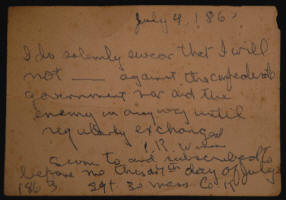 July 9, 1863
I do solemnly swear that I will
not — against the confederate
government nor aid the
enemy in any way until
regularly exchanged
R.
Sworn to and subscribed to
before me this 9th day of July
1863. Mass. Co. K